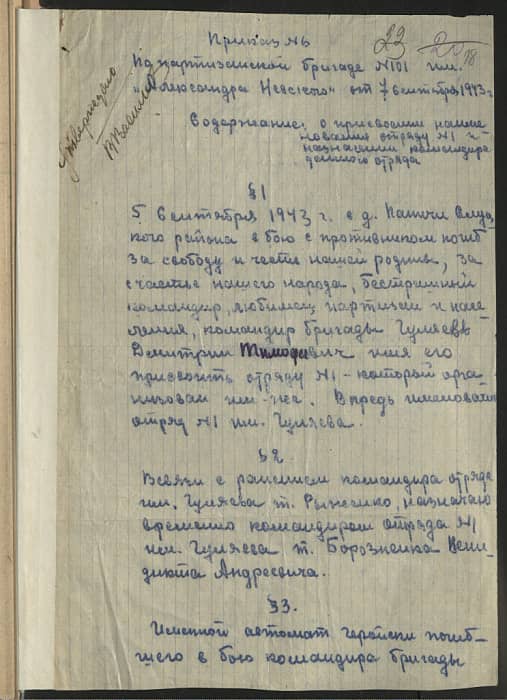 Приказ №
23 20 18
По партизанской бригаде №101 им.
"Александра Невского" от 7 сентября 1943 г.
Утверждаю
Содержание: о присвоении наиме-
нования отряду №1 и
назначении командира
данного отряда
§1
5 сентября 1943 г. в д. Слуц-
кого района в бою с противником погиб
за свободу и честь нашей родины, за
счастье нашего народа, бесстрашный
командир, любимец партизан и насе-
ления, командир бригады Гуляев
Дмитрий Тимофеевич имя его
присвоить отряду №1 - который орга-
низовал им-же. Впредь именовать
отряд №1 им. Гуляева.
§2
Всвязи с ранением командира отряда
им. Гуляева т. Рыженко, назначаю
временно командиром отряда №1
им. Гуляева т. Борозненко Вени-
дикта Андреевича.
§3.
Именной автомат геройски погиб-
шего в бою командира бригады